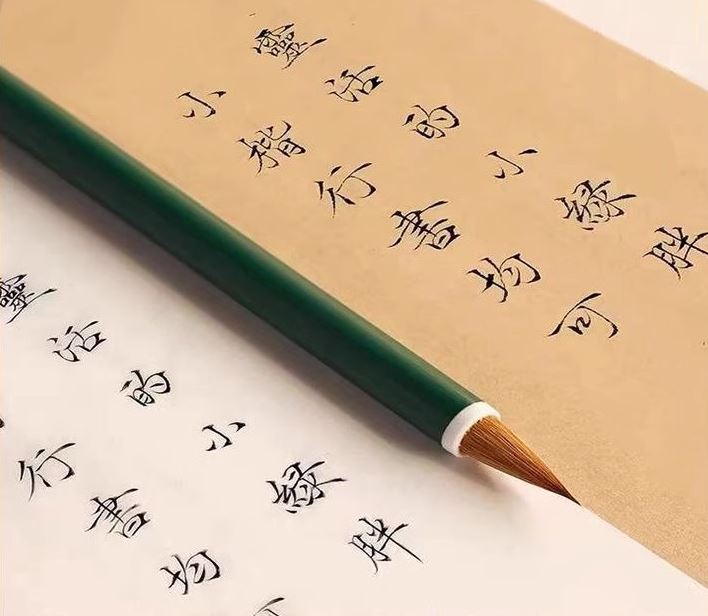 靈活的小綠胖
小楷行書均可
靈活的小綠胖
行書均